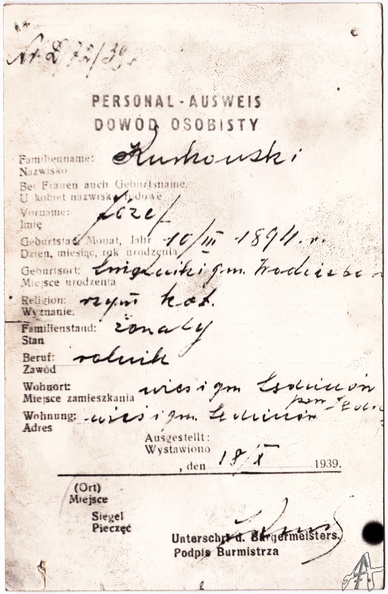 Nr. D/72/39.
PERSONAL-AUSWEIS
DOWÓD OSOBISTY
Familienname: Kurkowski
Nazwisko
Bei Frauen auch Geburtsname.
U kobiet nazwisko rodowe
Vorname: Józef
Imię
Geburtstag, Monat, Jahr 10/III 1894 r.
Dzień, miesiąc, rok urodzenia
Geburtsort: gm.
Miejsce urodzenia
Religion: rzym kat.
Wyznanie:
Familienstand: żonaty
Stan
Beruf: rolnik
Zawód
Wohnort: wieś i gm.
Miejsce zamieszkania
Wohnung: wieś i gm.
Adres
Ausgestellt:
Wystawiono
, den 18/X 1939.
(Ort)
Miejsce
Siegel
Pieczęć
Unterschr. d. Bürgermeisters.
Podpis Burmistrza